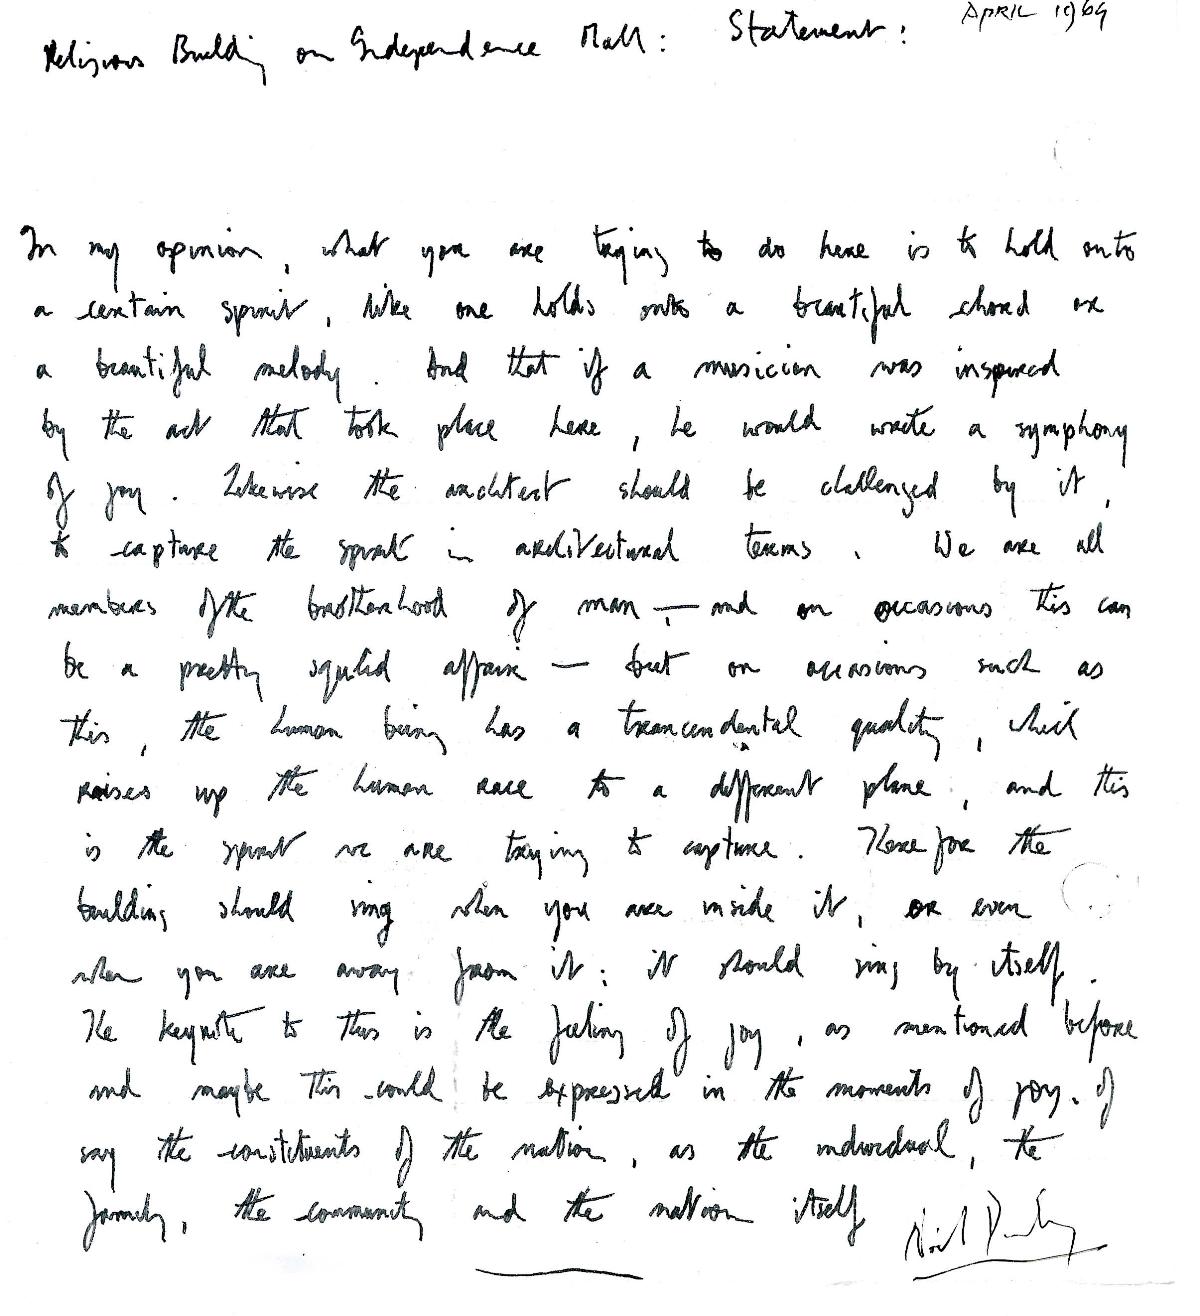 Religious Building on Independence Mall: Statement: APRIL 1969
In my opinion, what you are trying to do here is to hold onto
a certain spirit, like one holds onto a beautiful chord or
a beautiful melody. And that if a musician was inspired
by the act that took place here, he would write a symphony
of joy. Likewise the architect should be challenged by it,
to capture the spirit in architectural terms. We are all
members of the brotherhood of man — and on occasions this can
be a pretty squlid affair — but on occasions such as
this, the human being has a trancendental quality, which
raises up the human race to a different plane, and this
is the spirit we are trying to capture. Therefor the
building should sing when you are inside it, or even
when you are away from it: it should sing by itself.
The keynote to this is the feeling of joy, as mentioned before
and maybe this could be expressed in the moments of joy. of
say the constituents of the nation, as the individual, the
family, the community and the nation itself